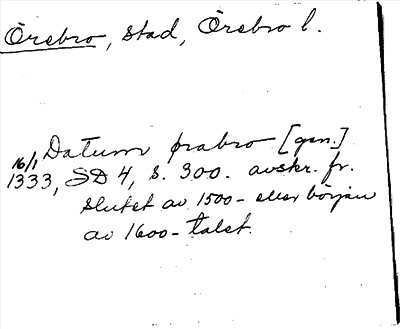 Örebro, stad, Örebro l.
Datum ørabro [gen.]
16/1 1333, SD 4, s. 300. avskr. fr.
slutet av 1500- eller början
av 1600-talet.